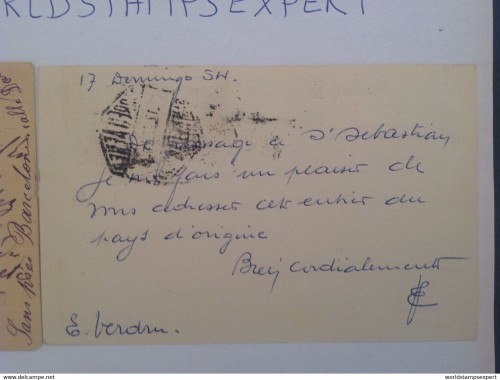 RLDSTAMPSEXPERT
17 Domingo SH.
De passage à St Sebastian
je me fais un plaisir de
vous adresser cet entier du
pays d'origine
Bien cordialement
E. Verdru.
Barcelona
www.delcampe.net
worldstampsexpert